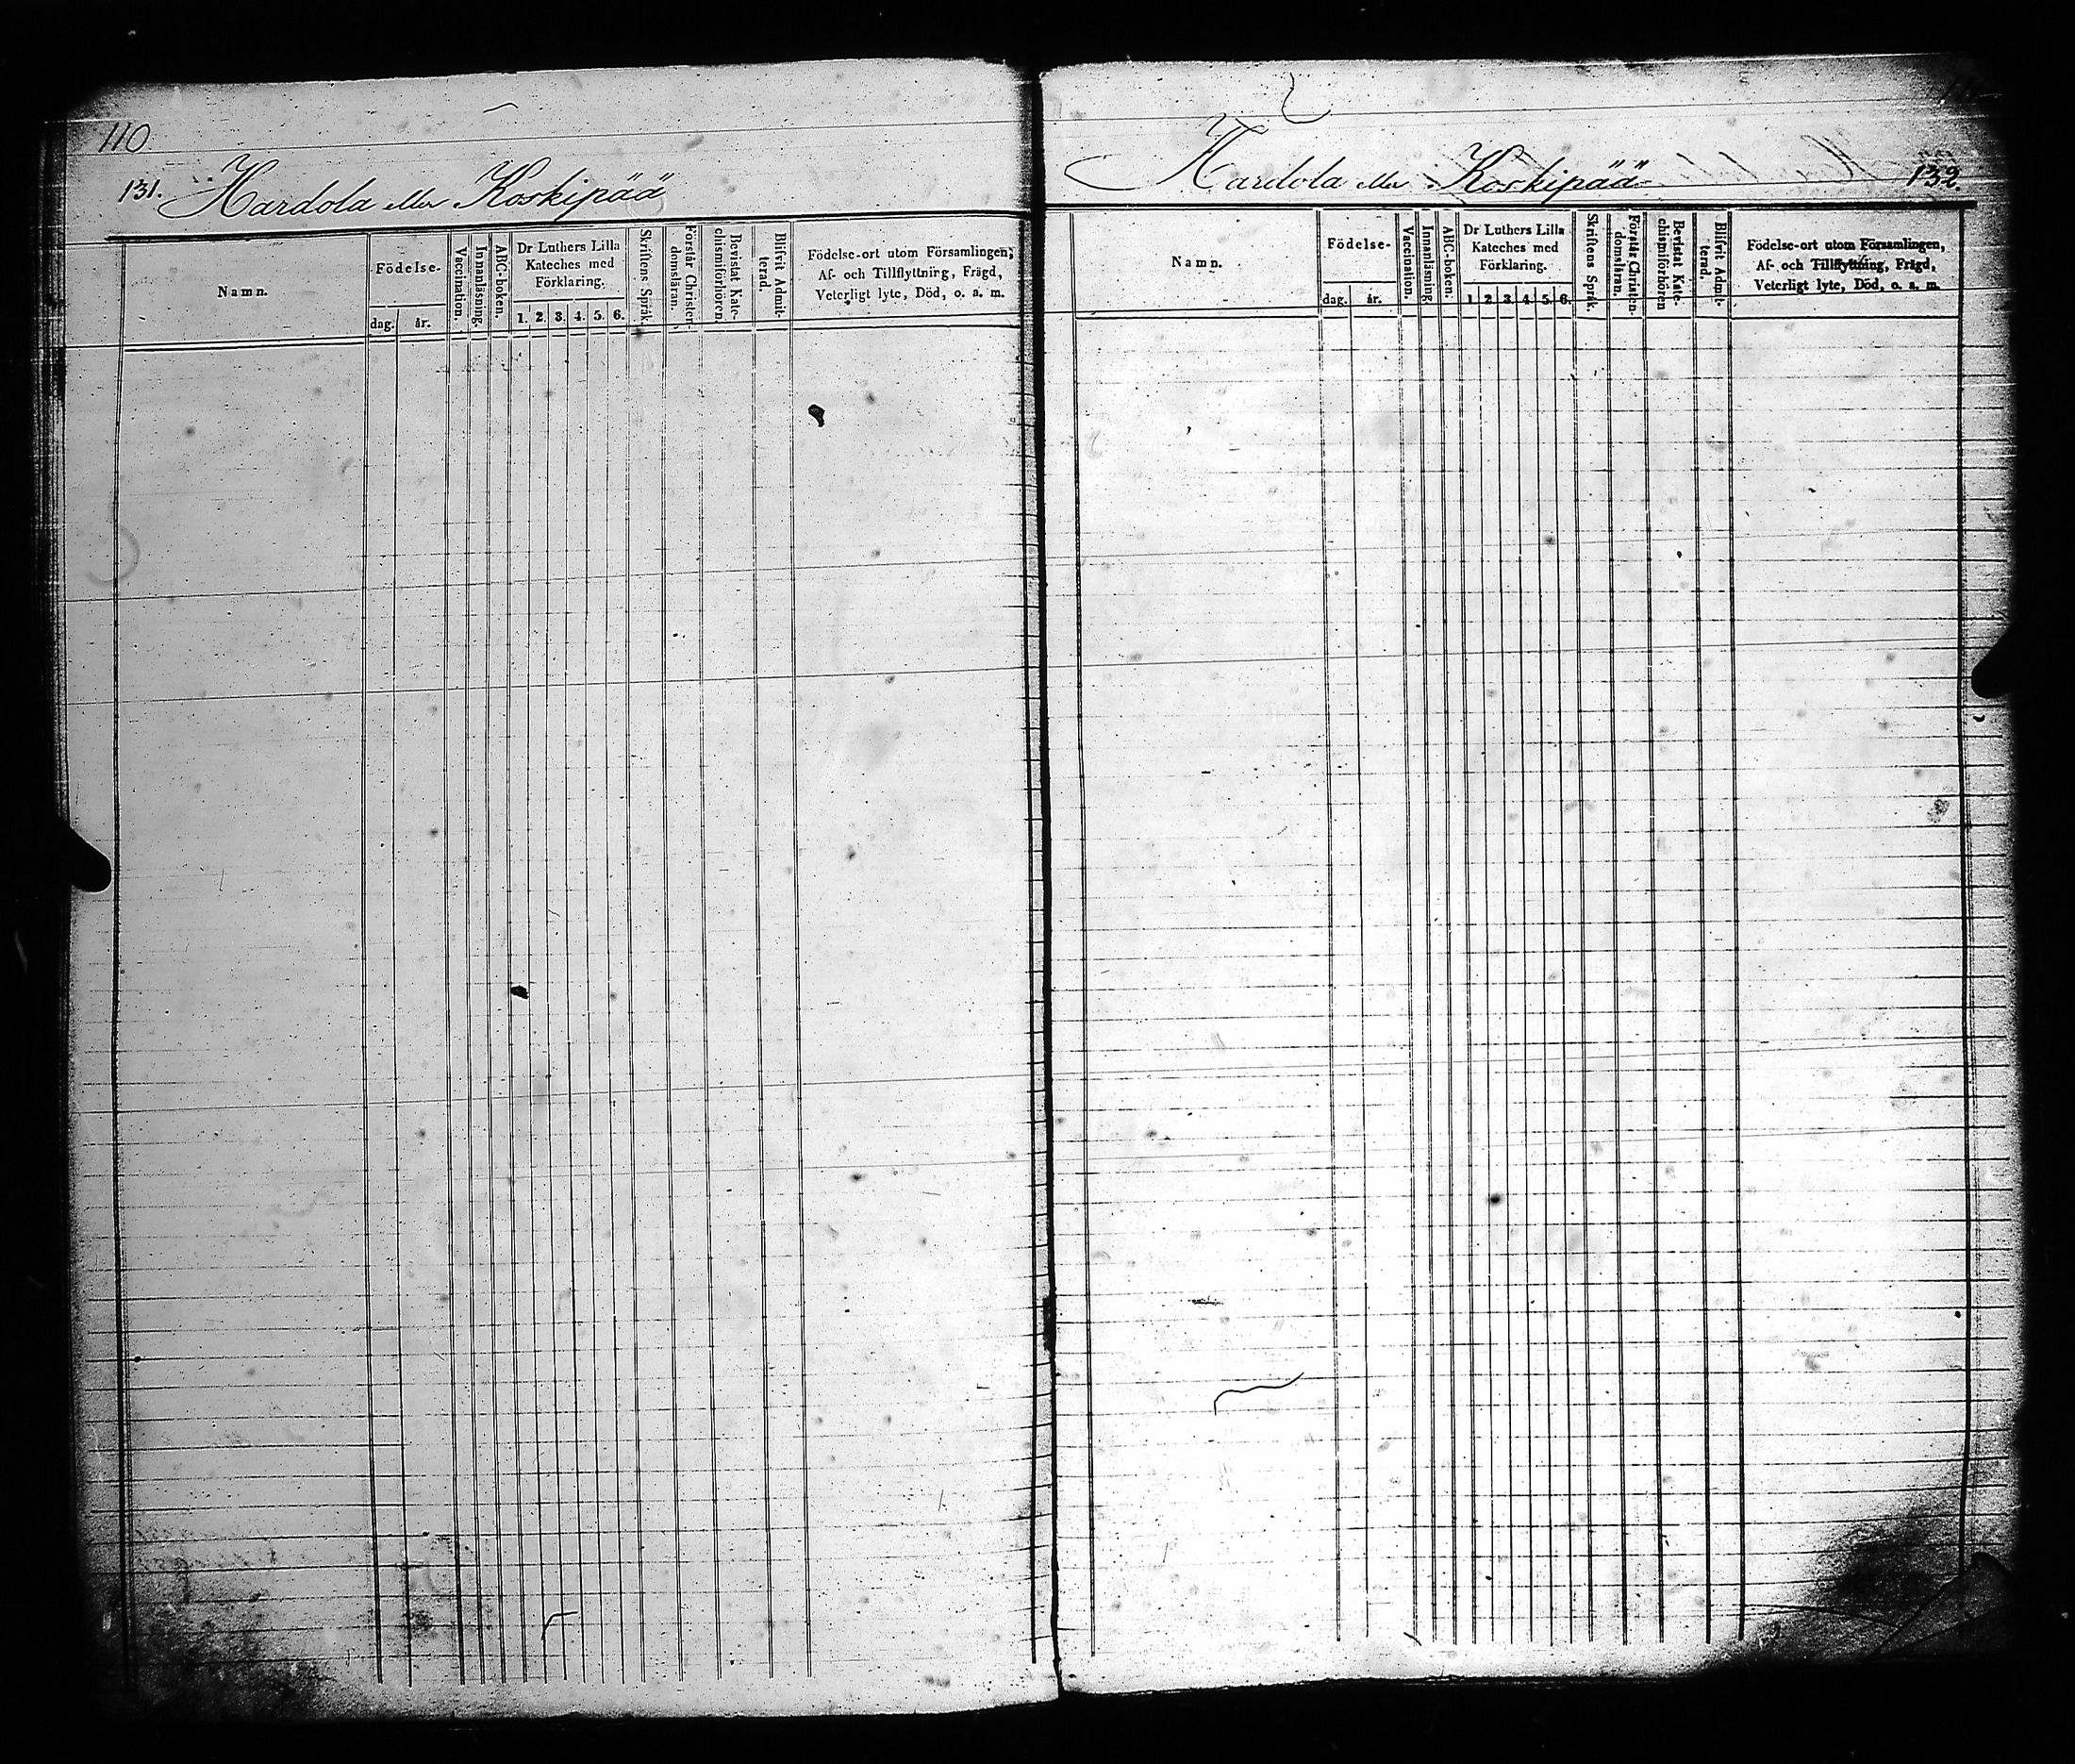 110
131. Hardola eller Koskipää
Namn.
Födelse-
dag. år.
Vaccination.
Innanläsning.
ABC-boken.
Dr Luthers Lilla
Kateches med
Förklaring.
1. 2. 3. 4. 5. 6.
Skriftens Språk.
Förstår Christen-
domsläran.
Bevistat Kate-
chismiförhören.
Blifvit Admit-
terad.
Födelse-ort utom Församlingen,
Af- och Tillflyttning, Frägd,
Veterligt lyte, Död, o. a. m.
Hardola eller Koskipää
132
Namn.
Födelse-
dag. år.
Vaccination.
Innanläsning.
ABC-boken.
Dr Luthers Lilla
Kateches med
Förklaring.
1. 2. 3. 4. 5. 6.
Skriftens Språk.
Förstår Christen-
domsläran.
Bevistat Kate-
chismiförhören
Blifvit Admit-
terad.
Födelse-ort utom Församlingen,
Af- och Tillflyttning, Frägd,
Veterligt lyte, Död, o. a. m.